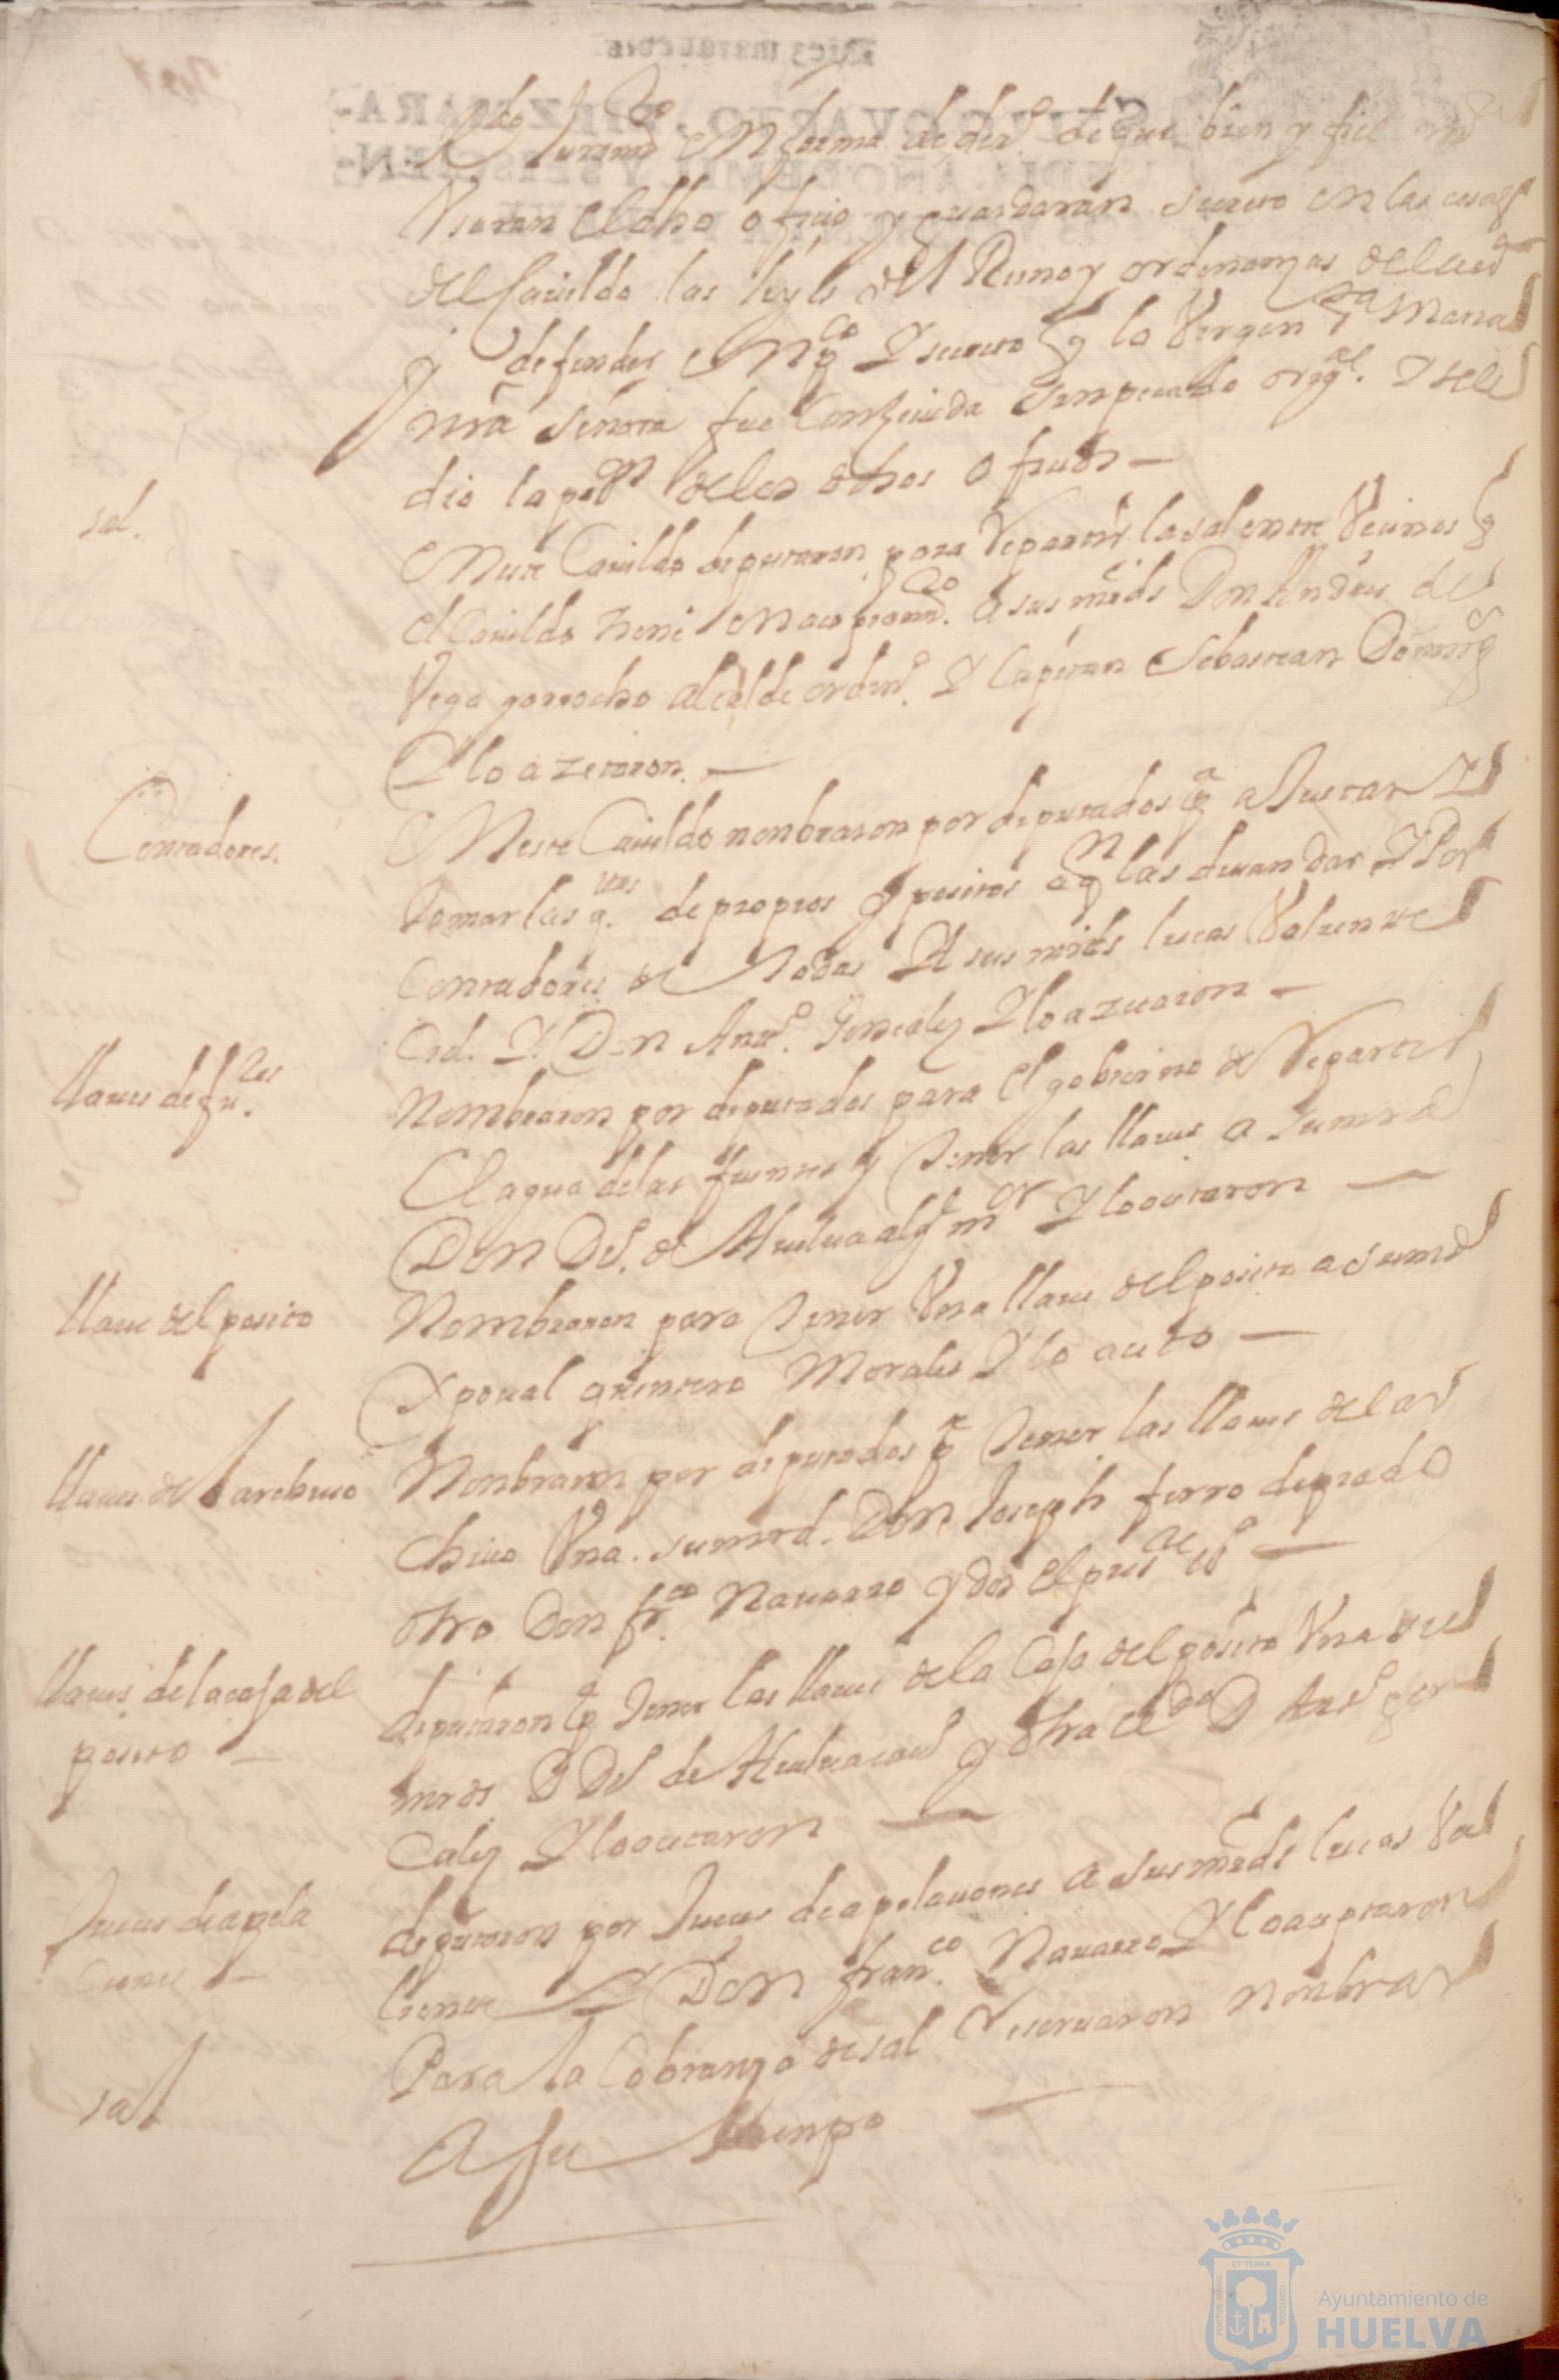 Juramto en forma de dro. de que bien y fiel mte
Usaran el dho ofiçio y guardaran secreto en las cosas
del Cauildo las leyes del Reino y ordenanzas
y defender en pco Y secreto q la Virgen Sta Maria
nra señora fue Conzeuida sin pecado origl. Y se les
dio la posn de los dchos ofiçios —
sal.
En este Cauildo deputaron para Repartir la sal entre Veçinos q
el Cauildo tiene en acopiamto. a sus mrds Don Andres de
Vega garrocho alcalde ordino. Y Capitan Sebastian Doming
Y lo azetaron. —
Contadores.
En este Cauildo nonbraron por deputados pa aJustar Y
Tomar las qtas de propios y positos a qn las deuan dar Y Por
Contadores de Todas A sus mrds lucas Valiente
Y Don Anto. Gonçalez Y lo azetaron —
llaues de fu.tes
Nombraron por deputados para el gobierno de Repartir
El agua de las fuentes y Tener las llaues a su mrd
Don Do. de Huelua algl mor Y lo açetaron —
llaue del posito
Nombraron para Tener Una llaue del posito a su mrd
Xpoual quintero Morales Y lo açeto —
llaues del archiuo
Nonbraron por deputados pa Tener las llaues del ar
chiuo Una. su mrd. Don Joseph fierro de prado
otra Don fr.co Nauarro y dos el preste esno —
llaues de la caja del
posito —
deputaron pa Tener las llaues de la Caja del posito Una sus
mrds D Do de Huelua y otra el dho D Anto gon
Calez Y lo açetaron —
Jueçes de apela
ciones —
deputaron por Jueçes de apelaçiones a sus mrds lucas Va
liente Y Don fran.co Nauarro Y lo açeptaron
sal
Para la Cobranza de sal Reseruaron nonbrar
A su tienpo —
Ayuntamiento de
HUELVA